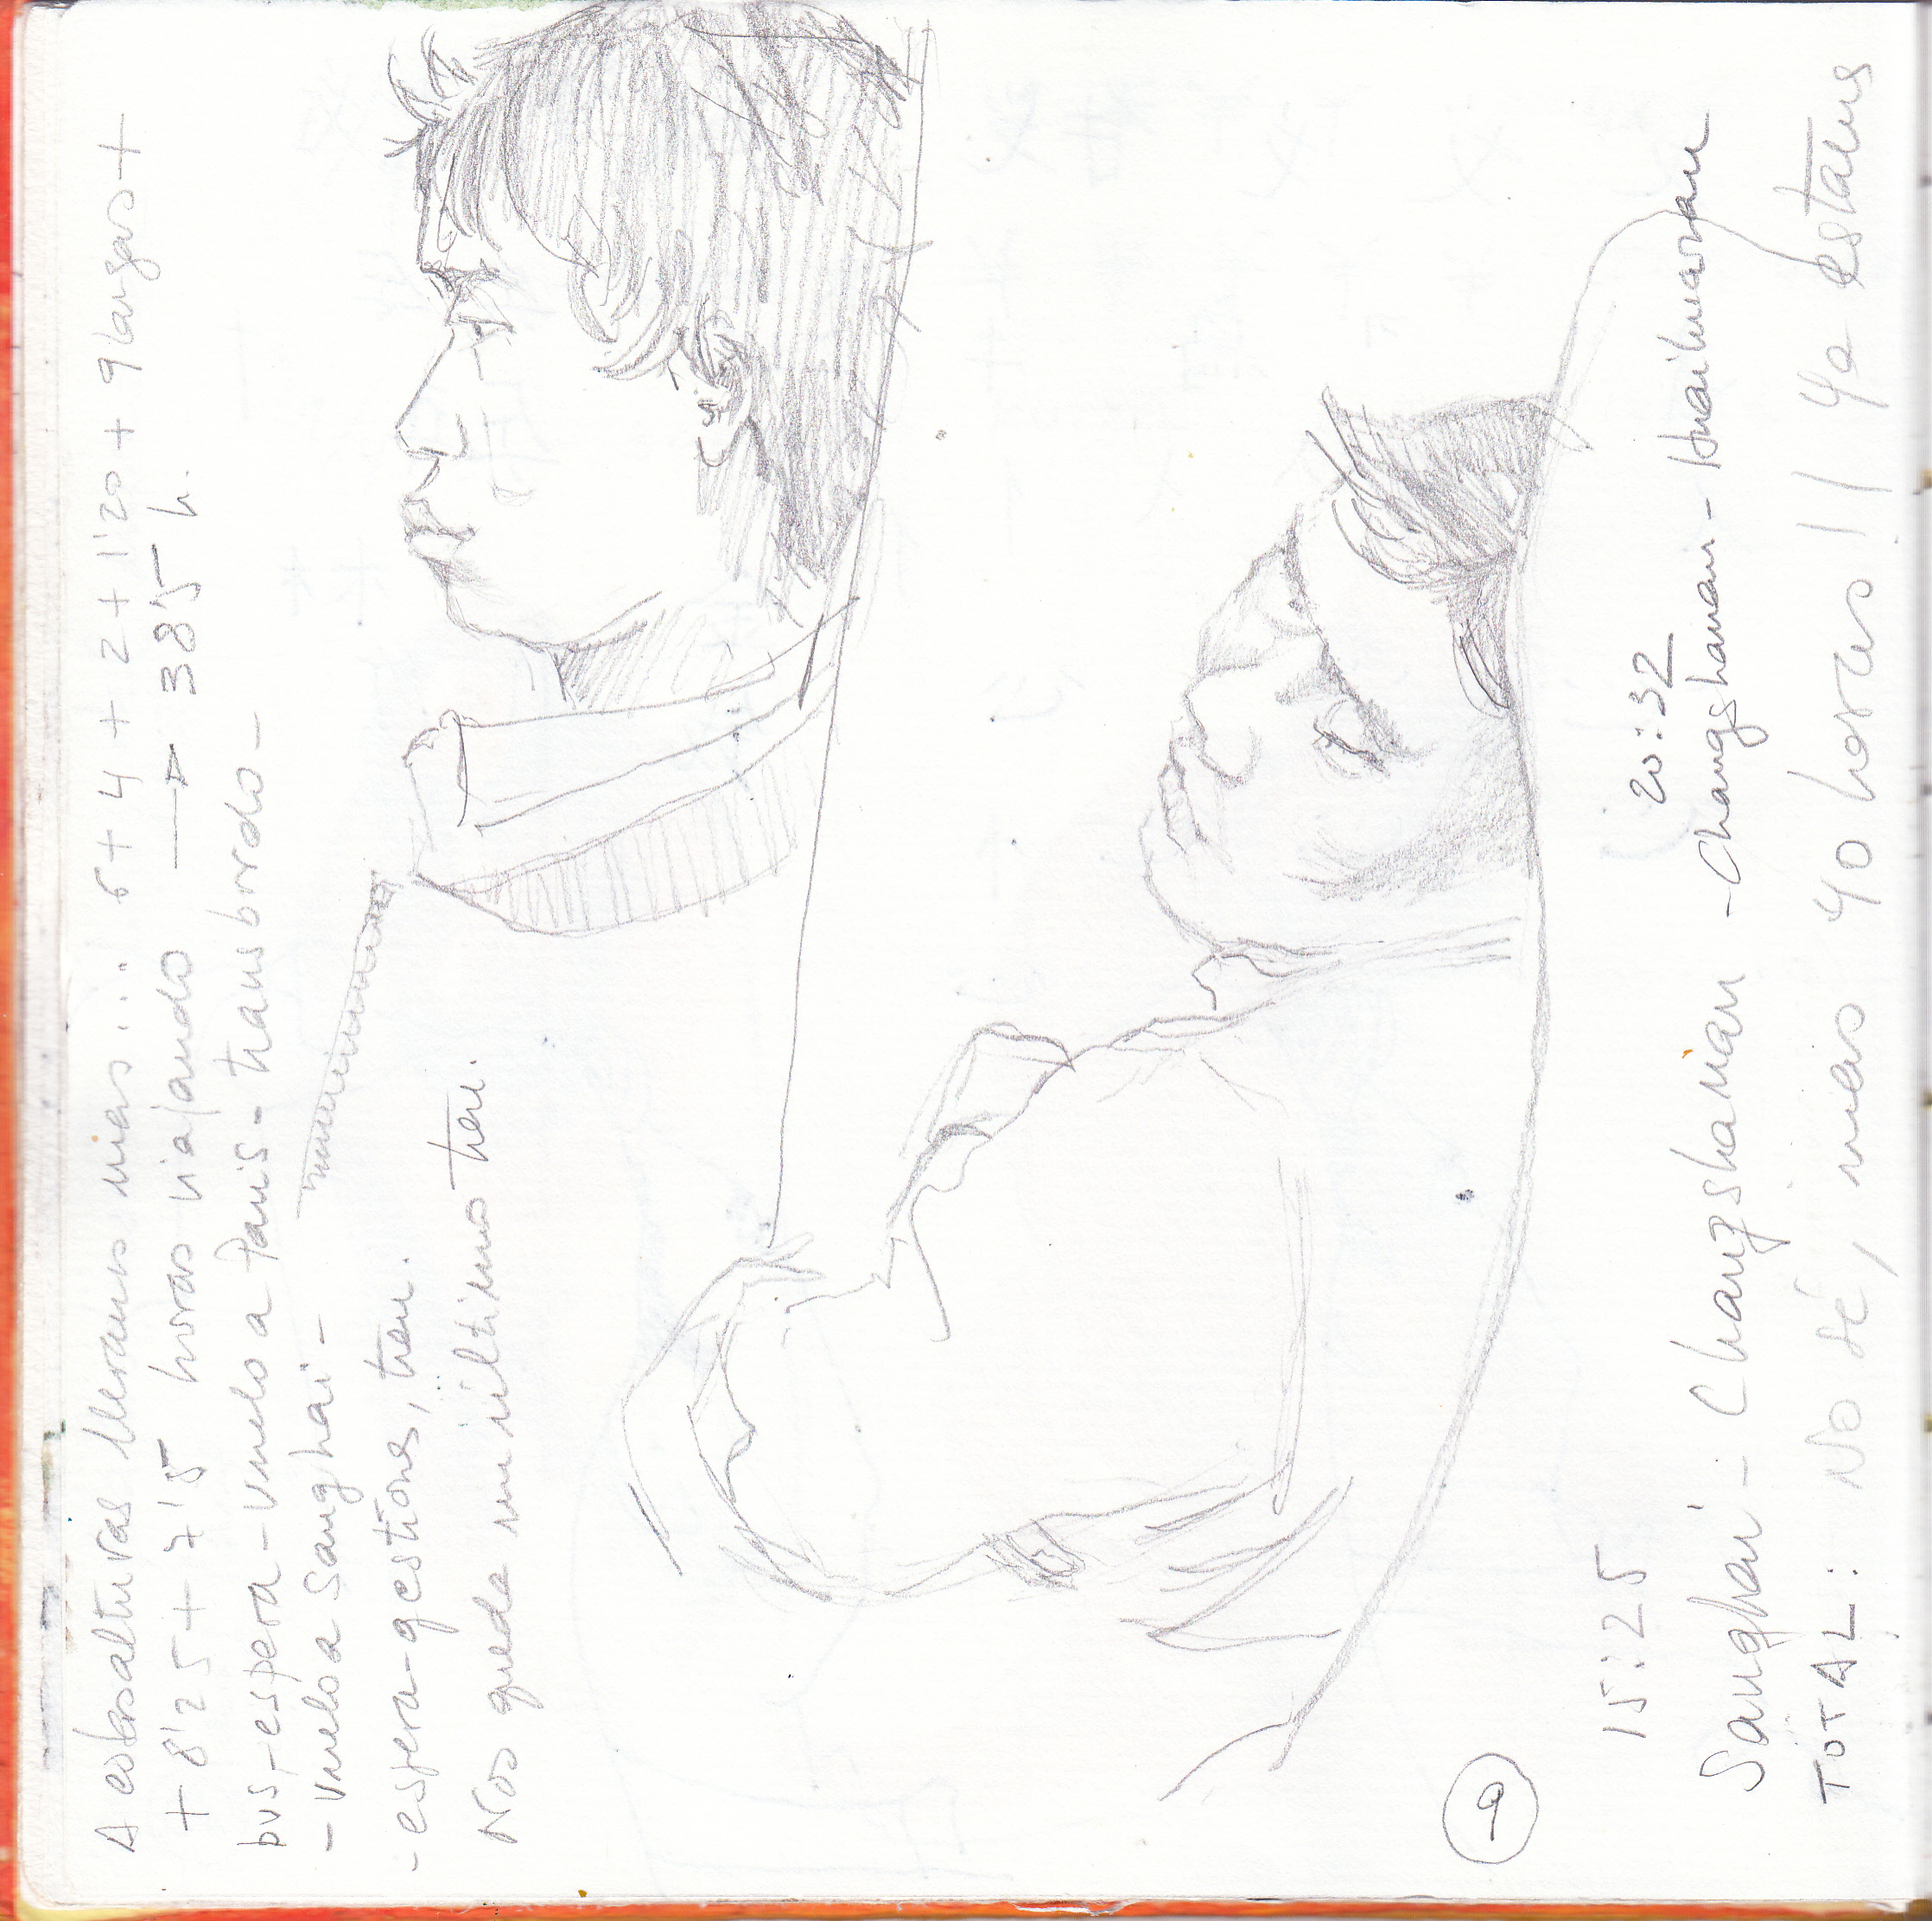 A estas alturas llevamos mas... 6 + 4 + 2 + 1'20 + 9 largos +
+ 8'25 + 7'5 horas viajando → 38'5 h.
bus - espera - vuelo a Paris - transbordo -
- vuelo a Sanghai -
- espera - gestiones, tren.
Nos queda un último tren.
9
15:25 20:32
Sanghai - Changshanan - Changshanan - Huaihuanan
TOTAL: No sé, mas 40 horas !! Ya estamos